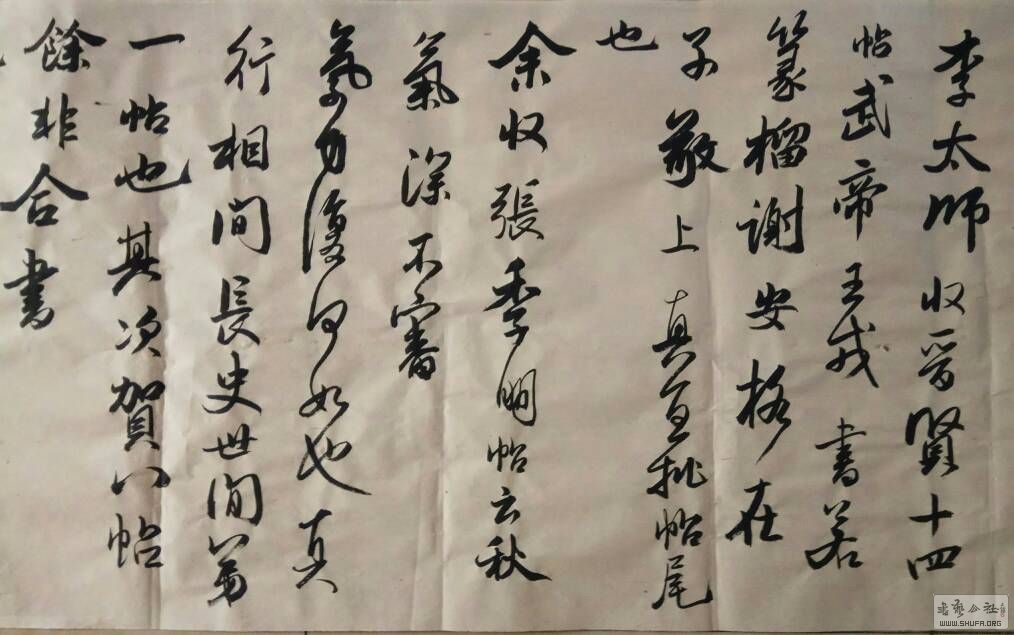 李太師收晉賢十四
帖武帝王戎書若
篆榴謝安格在
子敬上真宜批帖尾
也
余收張季明帖云秋
氣深不審
氣力復何如也真
行相間長史世間第
一帖也其次賀八帖
餘非合書
書藝公社
WWW.SHUFA.ORG